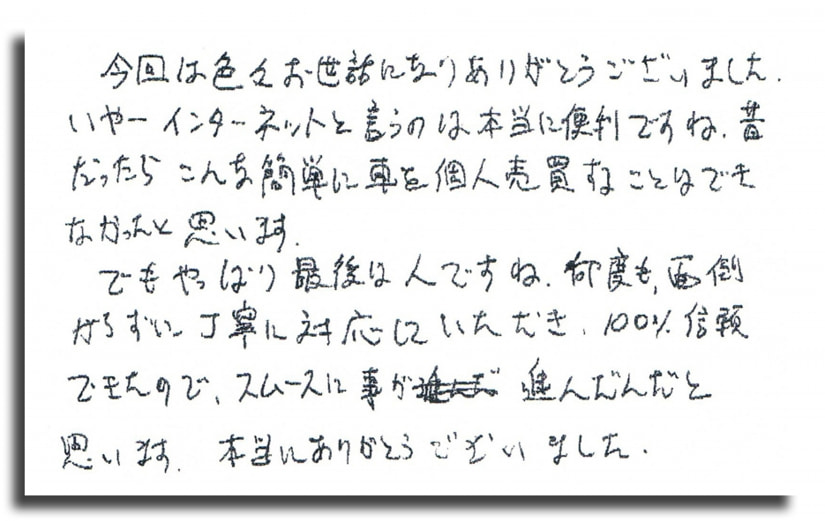 今回は色々お世話になりありがとうございました.
いやーインターネットと言うのは本当に便利ですね.昔
だったらこんな簡単に車を個人売買することはでき
なかったと思います.
でもやっぱり最後は人ですね.何度も,面倒
がらずに丁寧に対応していただき.100%信頼
できたので、スムースに事が進んだんだと
思います.本当にありがとうございました.